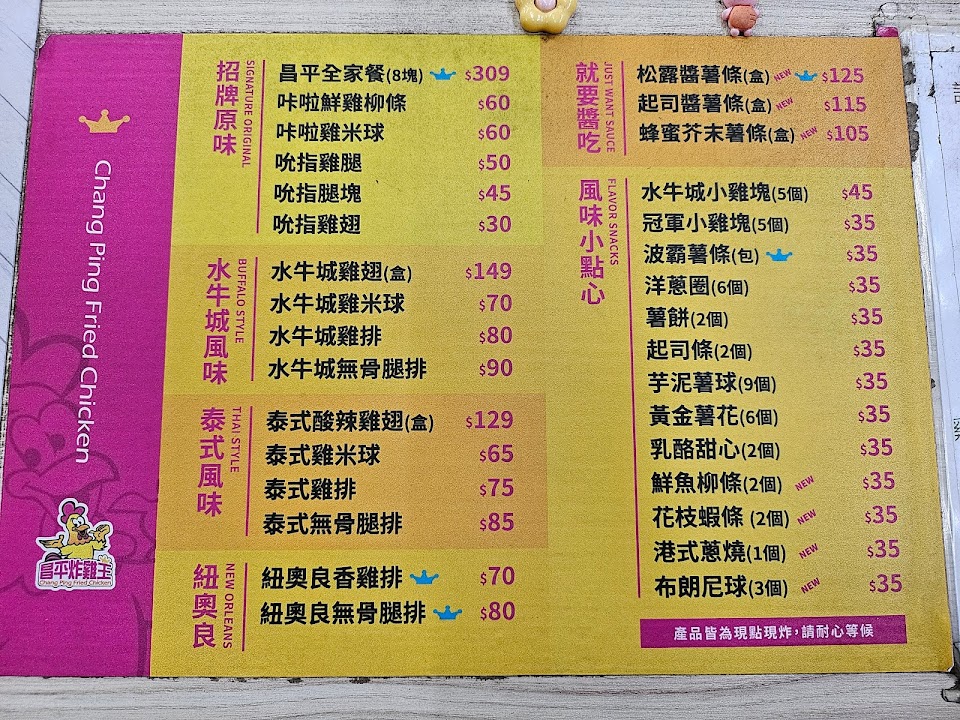 Chang Ping Fried Chicken
昌平炸雞王
Chang Ping Fried Chicken
招牌原味
SIGNATURE ORIGINAL
昌平全家餐(8塊) $309
咔啦鮮雞柳條 $60
咔啦雞米球 $60
吮指雞腿 $50
吮指腿塊 $45
吮指雞翅 $30
水牛城風味
BUFFALO STYLE
水牛城雞翅(盒) $149
水牛城雞米球 $70
水牛城雞排 $80
水牛城無骨腿排 $90
泰式風味
THAI STYLE
泰式酸辣雞翅(盒) $129
泰式雞米球 $65
泰式雞排 $75
泰式無骨腿排 $85
紐奧良
NEW ORLEANS
紐奧良香雞排 $70
紐奧良無骨腿排 $80
就要醬吃
JUST WANT SAUCE
松露醬薯條(盒) NEW $125
起司醬薯條(盒) NEW $115
蜂蜜芥末薯條(盒) NEW $105
風味小點心
FLAVOR SNACKS
水牛城小雞塊(5個) $45
冠軍小雞塊(5個) $35
波霸薯條(包) $35
洋蔥圈(6個) $35
薯餅(2個) $35
起司條(2個) $35
芋泥薯球(9個) $35
黃金薯花(6個) $35
乳酪甜心(2個) $35
鮮魚柳條(2個) NEW $35
花枝蝦條 (2個) NEW $35
港式蔥燒(1個) NEW $35
布朗尼球(3個) NEW $35
產品皆為現點現炸,請耐心等候